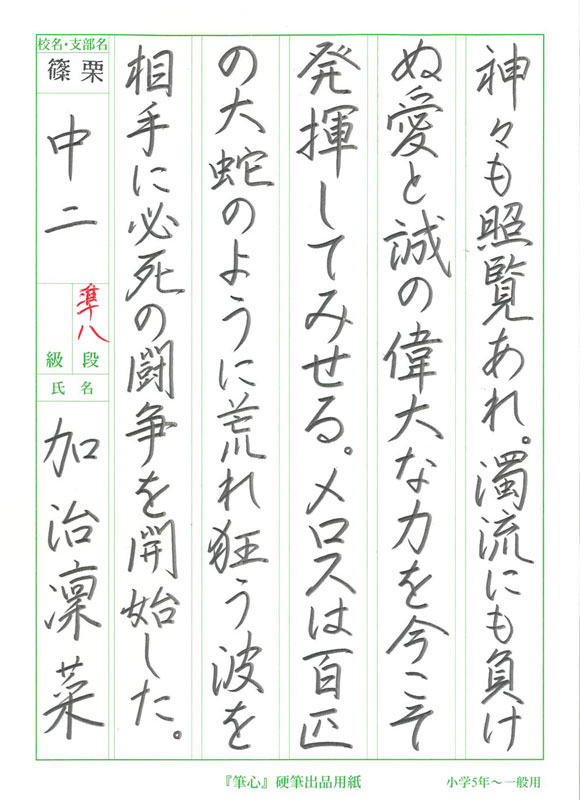 神々も照覧あれ。濁流にも負け
ぬ愛と誠の偉大な力を今こそ
発揮してみせる。メロスは百匹
の大蛇のように荒れ狂う波を
相手に必死の闘争を開始した。
校名・支部名
篠栗
中二
準八
級
段
氏名
加治凛菜
『筆心』硬筆出品用紙
小学5年〜一般用